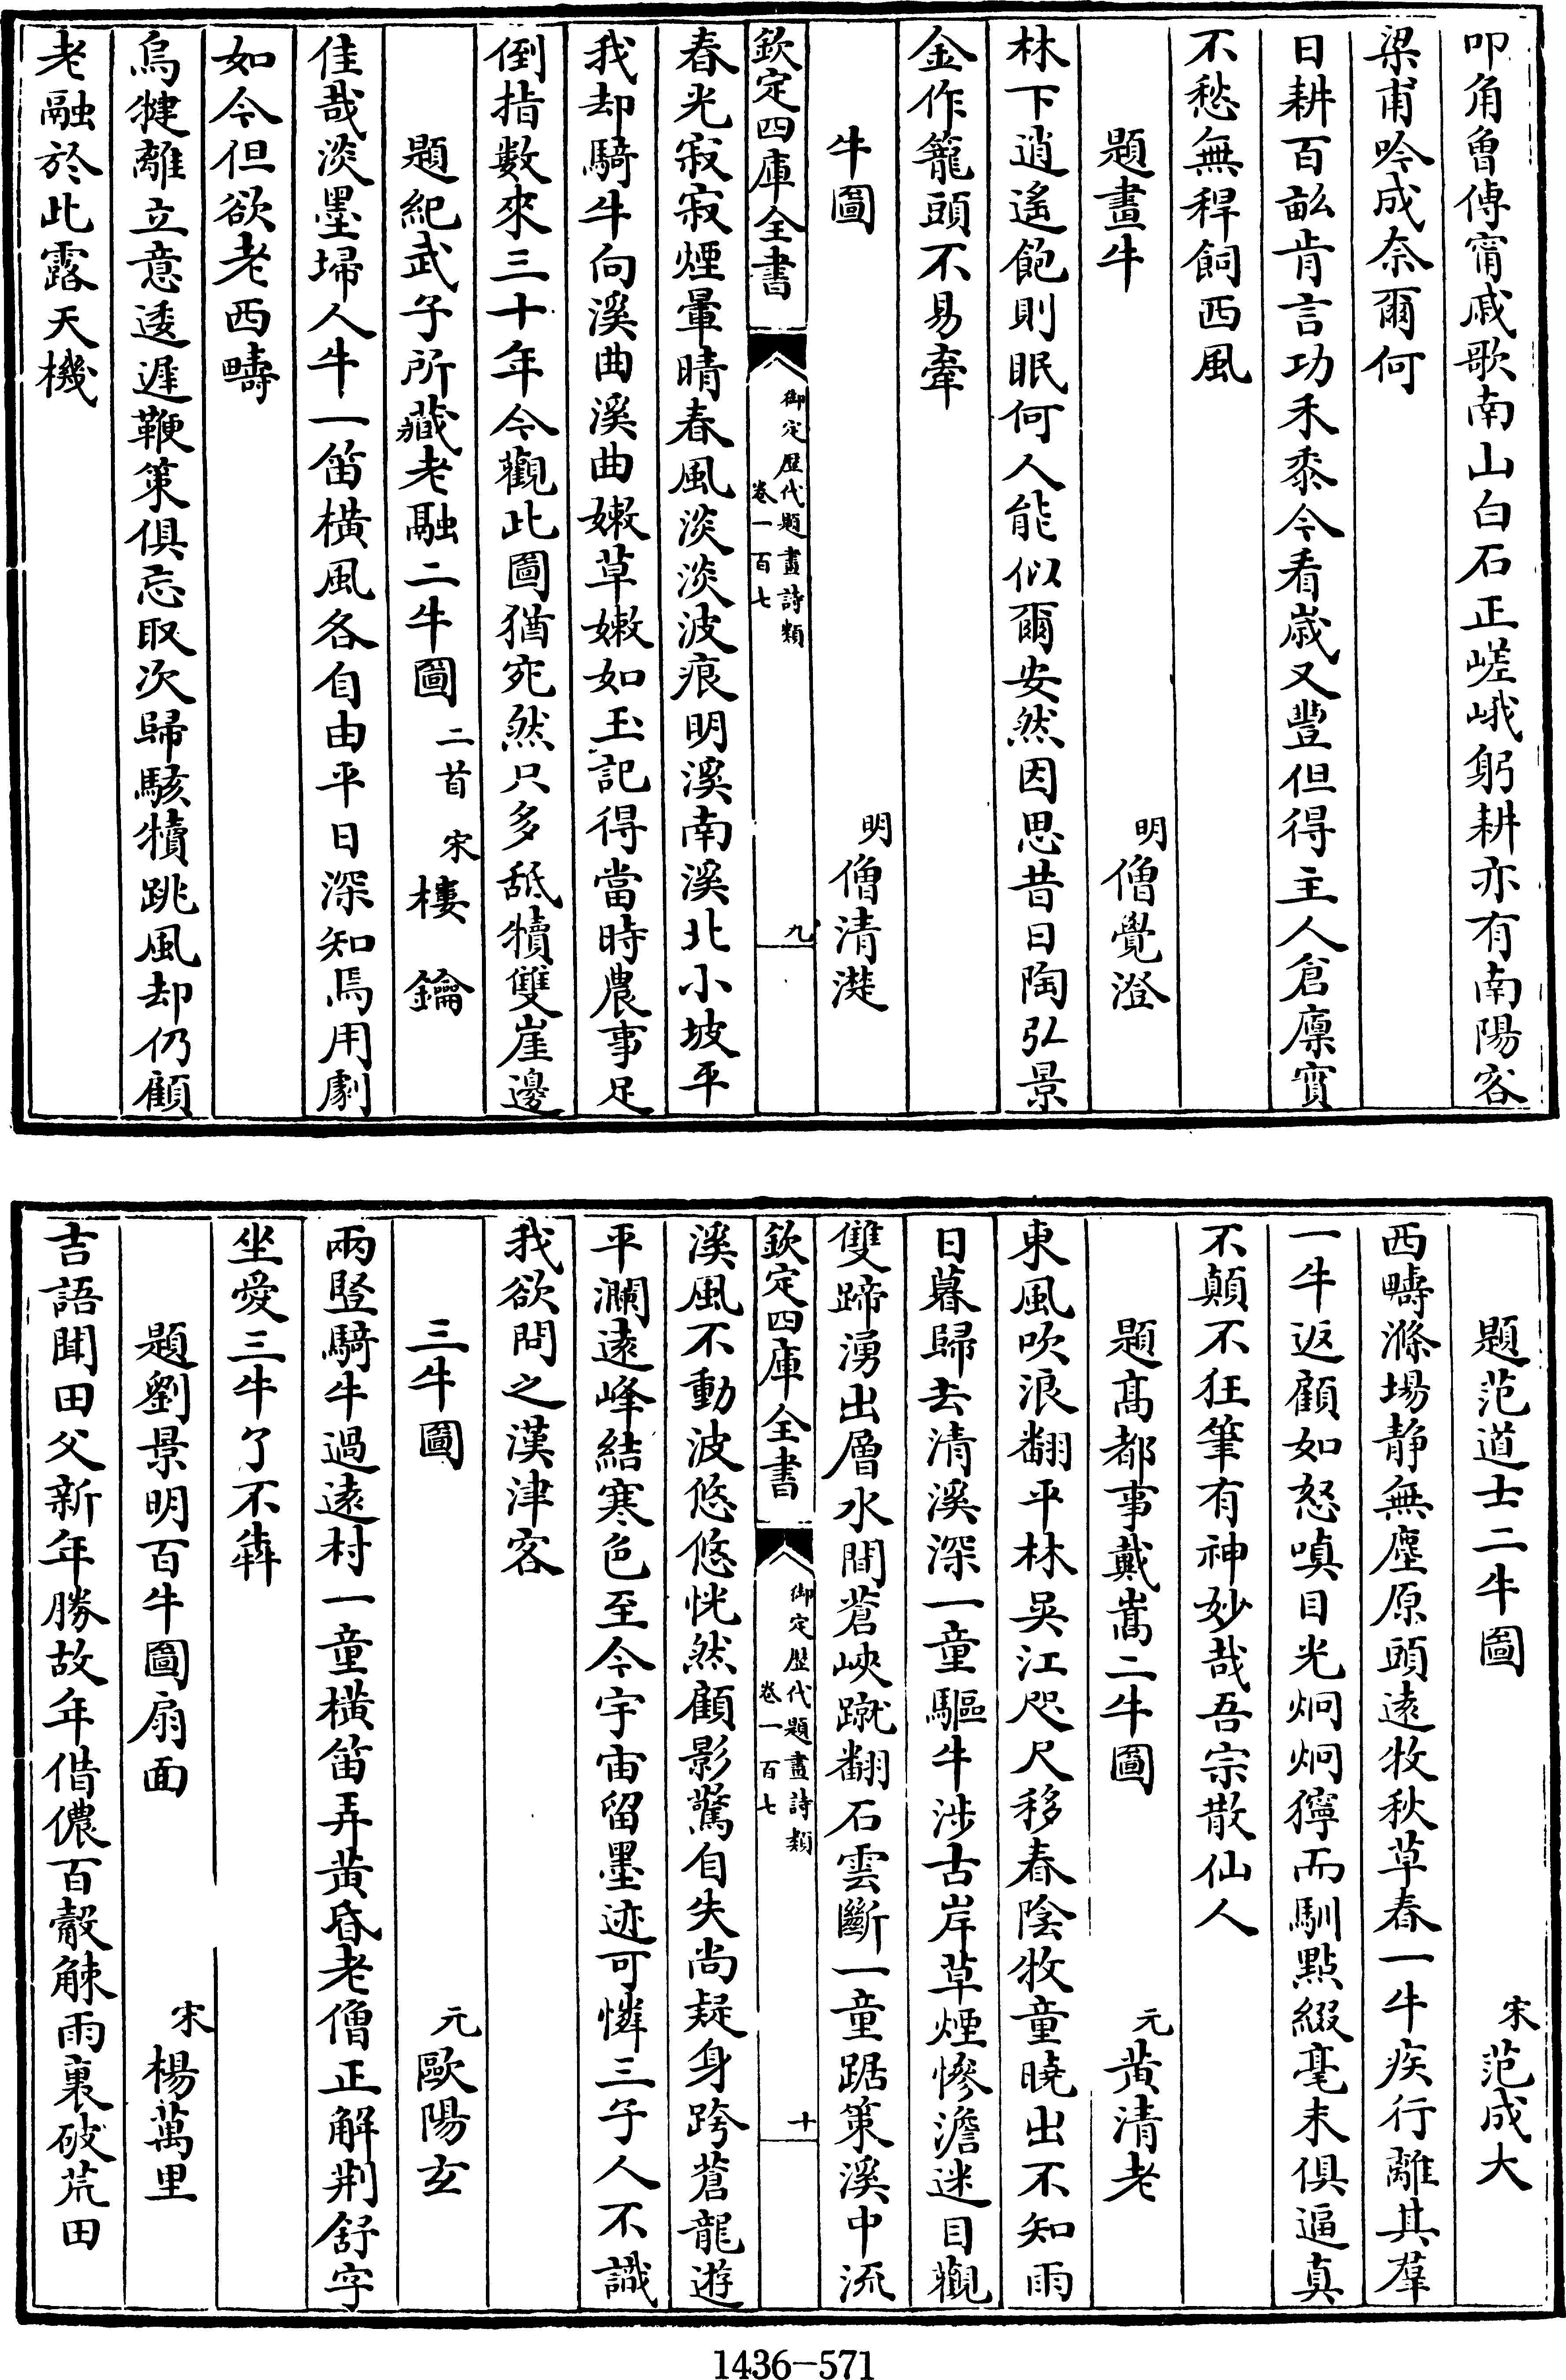 叩角曾傅甯戚歌南山白石正嵯峨躬耕亦有南陽客
梁甫吟成奈爾何
日耕百畝肯言功禾黍今看歲又豐但得主人倉廩實
不愁無稈飼西風
題畫牛 明 僧覺澄
林下逍遙飽則眠何人能似爾安然因思昔日陶弘景
金作籠頭不易牽
牛圖 明 僧清濋
欽定四庫全書 御定歷代題畫詩類 卷一百七 九
春光寂寂煙暈晴春風淡淡波痕明溪南溪北小坡平
我却騎牛向溪曲溪曲嫩草嫩如玉記得當時農事足
倒指數來三十年今觀此圖猶宛然只多舐犢雙崖邊
題紀武子所藏老融二牛圖 二首 宋 樓鑰
佳哉淡墨埽人牛一笛橫風各自由平日深知焉用劇
如今但欲老西疇
烏犍離立意逶遲鞭策俱忘取次歸駭犢跳風却仍顧
老融於此露天機
題范道士二牛圖 宋 范成大
西疇滌場静無塵原頭遠牧秋草春一牛疾行離其羣
一牛返顧如怒嗔目光炯炯獰而馴點綴毫末俱逼真
不顛不狂筆有神妙哉吾宗散仙人
題髙都事戴嵩二牛圖 元 黄清老
東風吹浪翻平林吳江咫尺移春陰牧童曉出不知雨
日暮歸去清溪深一童驅牛涉古岸草煙慘澹迷目觀
雙蹄湧出層水間蒼峽蹴翻石雲斷一童踞策溪中流
欽定四庫全書 御定歷代題畫詩類 卷一百七 十
溪風不動波悠悠恍然顧影驚自失尚疑身跨蒼龍遊
平瀾遠峰結寒色至今宇宙留墨迹可憐三子人不識
我欲問之漢津客
三牛圖 元 歐陽玄
兩豎騎牛過遠村一童橫笛弄黄昏老僧正解荆舒字
坐愛三牛了不犇
題劉景明百牛圖扇面 宋 楊萬里
吉語聞田父新年勝故年借儂百觳觫雨裏破荒田
1436-571